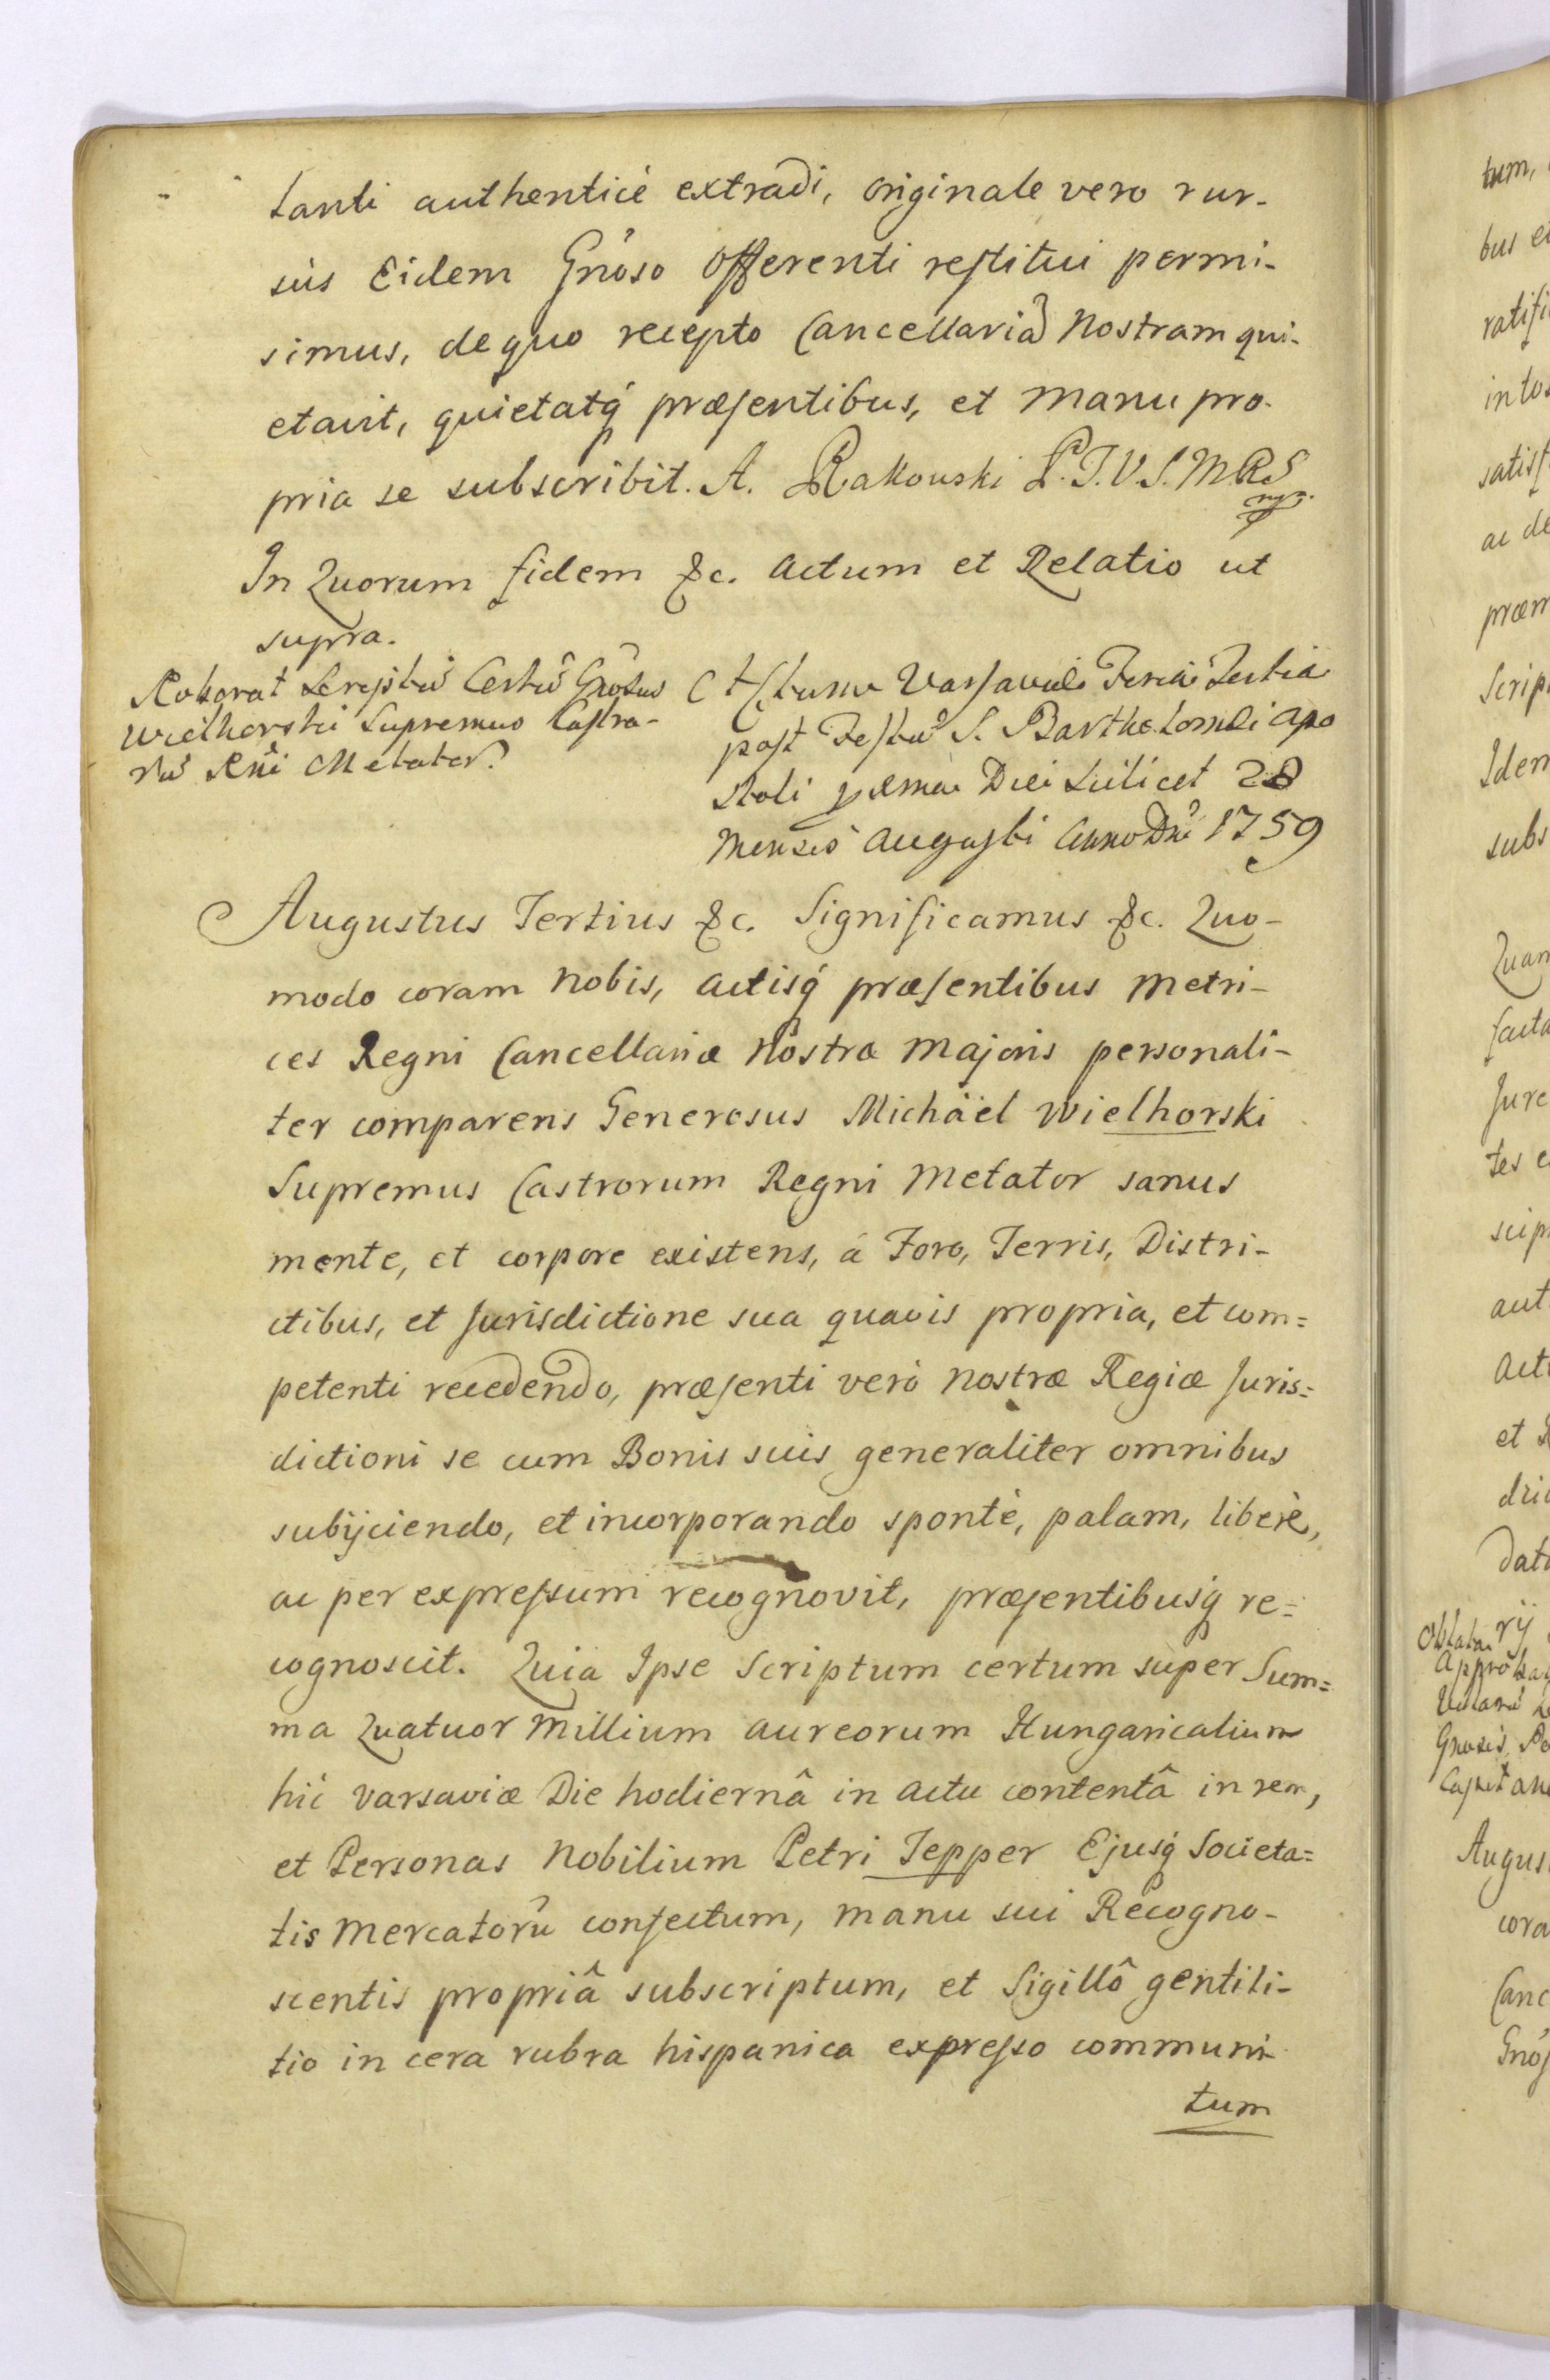 tanti authenticè extradi, originale vero rur-
sùs Eidem Gnôso Offerenti restitui permi-
simus, de quo recepto Cancellariã Nostram qui-
etavit, quietatq́ præsentibus, et manu pro-
pria se subscribit. A. Rakowski P.T.V.S.M.R.S
mp.
In Quorum fidem &c. Actum et Relatio ut
supra.
Roborat Scriptũ Certũ Gnôsus
Wielhorski Supremus Castro-
rũ Rñi Metator.
Actum Varsaviæ Feria Tertia
post Festũ S. Bartholomæi Apo
stoli Die scilicet 28
Mensis Augusti Anno Dñi 1759
Augustus Tertius &c. Significamus &c. Quo-
modo coram Nobis, Actisq́ præsentibus Metri-
ces Regni Cancellariæ Nostræ Majoris personali-
ter comparens Generosus Michäel Wielhorski
Supremus Castrorum Regni Metator sanus
mente, et corpore existens, á Foro, Terris, Distri-
ctibus, et Jurisdictione sua quavis propria, et com=
petenti recedendo, præsenti verò Nostræ Regiæ Juris=
dictioni se cum Bonis suis generaliter omnibus
subijciendo, et incorporando spontè, palam, liberè,
ac per expressum recognovit, præsentibusq́ re=
cognoscit. Quia Ipse Scriptum certum super Sum=
ma Quatuor Millium Aureorum Hungaricalium
hìc Varsaviæ Die hodiernâ in Actu contentâ in rem,
et Personas Nobilium Petri Tepper Ejusq́ Societa=
tis Mercatorũ confectum, manu sui Recogno-
scentis propriâ subscriptum, et Sigillô gentili-
tio in cera rubra hispanica expresso communi-
tum
tum,
bus et
ratifi
in to
satisf
ac de
præm
Scrip
Idem
subs
Quan
facta
Jure
tes e
scip
aut
Act
et R
dic
Dat
rij
Oblata
Approba
Gnosis
Capitan
Augus
cora
Canc
Gnôs